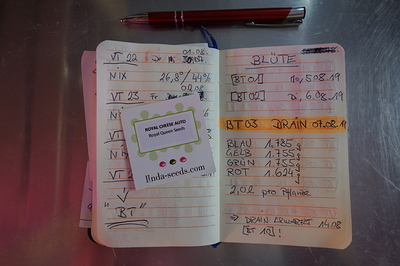 VT 22
01.08.
NIX 26,8°/44%
02.08
VT 23 Fr
NIX
ROYAL CHEESE AUTO
Royal Queen Seeds
linda-seeds.com
"BT"
BLÜTE
[BT 01] Mo, 5.08.19
[BT 02] Di, 6.08.19
BT 03 DRAIN 07.08.19
BLAU 1.785
GELB 1.755
GRÜN 1.755
ROT 1.624
2,0 l pro Pflanze
→ DRAIN ERWARTET 14.08
[BT 10]!